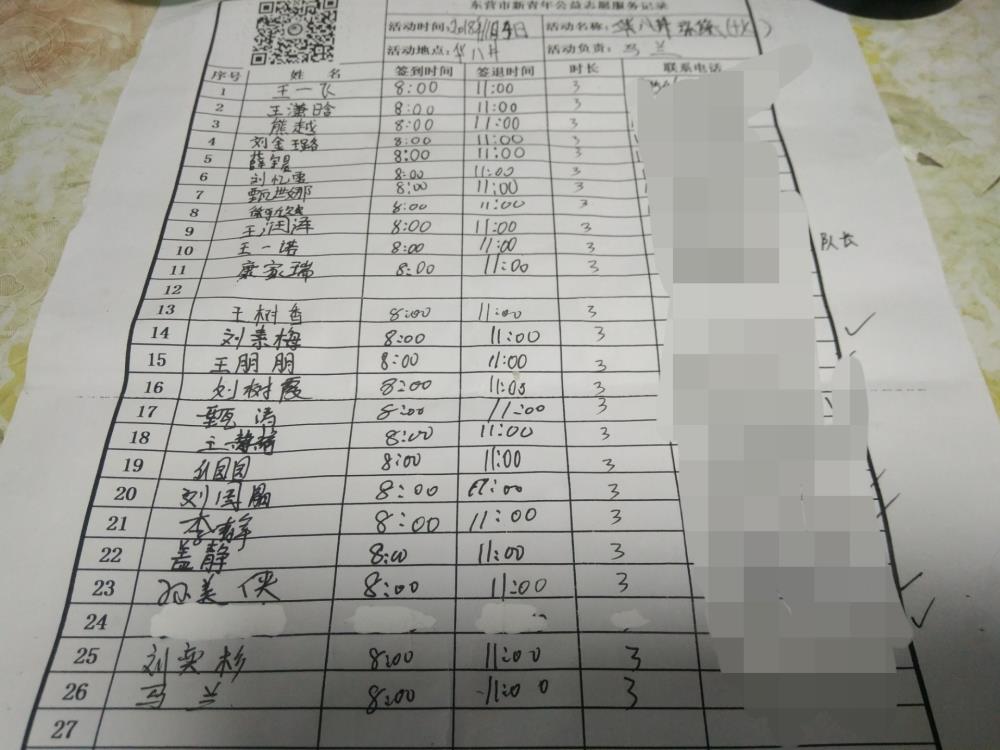 东营市新青年公益志愿服务记录
活动时间: 2018年11月4日 活动名称: 华八井
活动地点: 华八井 活动负责: 马兰
序号 姓名 签到时间 签退时间 时长 联系电话
1 王一飞 8:00 11:00 3
2 王潇晗 8:00 11:00 3
3 熊越 8:00 11:00 3
4 刘金璐 8:00 11:00 3
5 薛锟 8:00 11:00 3
6 刘忆 8:00 11:00 3
7 甄世娜 8:00 11:00 3
8 8:00 11:00 3
9 王润泽 8:00 11:00 3
队长
10 王一诺 8:00 11:00 3
11 康家瑞 8:00 11:00 3
12
13 王树香 8:00 11:00 3
14 刘素梅 8:00 11:00 3
15 王朋朋 8:00 11:00 3
16 刘树霞 8:00 11:00 3
17 甄涛 8:00 11:00 3
18 王 8:00 11:00 3
19 团团 8:00 11:00 3
20 刘国朋 8:00 11:00 3
21 李 8:00 11:00 3
22 盖静 8:00 11:00 3
23 孙美侠 8:00 11:00 3
24
25 刘奕杉 8:00 11:00 3
26 马兰 8:00 11:00 3
27